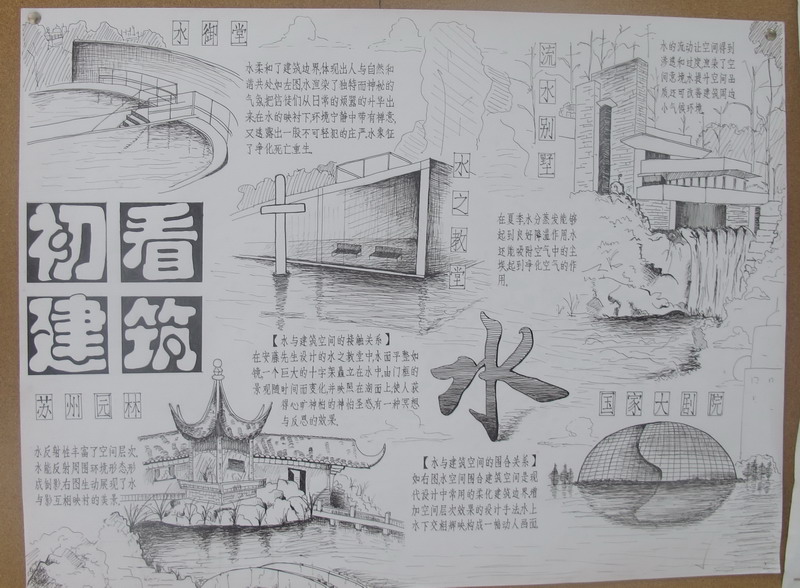 水御堂
水柔和了建筑边界,体现出人与自然和
谐共处,如左图水渲染了独特而神秘的
气氛,把信徒们从日常的烦嚣的升华出
来,在水的映衬下,环境宁静中带有禅意,
又透露出一股不可轻犯的庄严,水象征
了净化死亡重生.
流水别墅
水的流动让空间得到
渗透和过度,渲染了空
间意境,水提升空间品
质还可改善建筑周边
小气候环境.
水之教堂
在夏季,水分蒸发能够
起到良好降温作用,水
还能吸附空气中的尘
埃,起到净化空气的作
用.
初看
建筑
【水与建筑空间的接触关系】
在安藤先生设计的水之教堂中,水面平整如
镜,一个巨大的十字架矗立在水中,由门框的
景观随时间而变化,并映照在湖面上,使人获
得心旷神怡的神怡圣感,有一种冥想
与反思的效果.
水
苏州园林
水反射性丰富了空间层次,
水能反射周围环境形态,形
成倒影,右图生动展现了水
与影互相映衬的美景.
国家大剧院
【水与建筑空间的围合关系】
如右图水空间围合建筑空间是现
代设计中常用的柔化建筑边界,增
加空间层次效果的设计手法,水上
水下交相辉映,构成一幅动人画面.